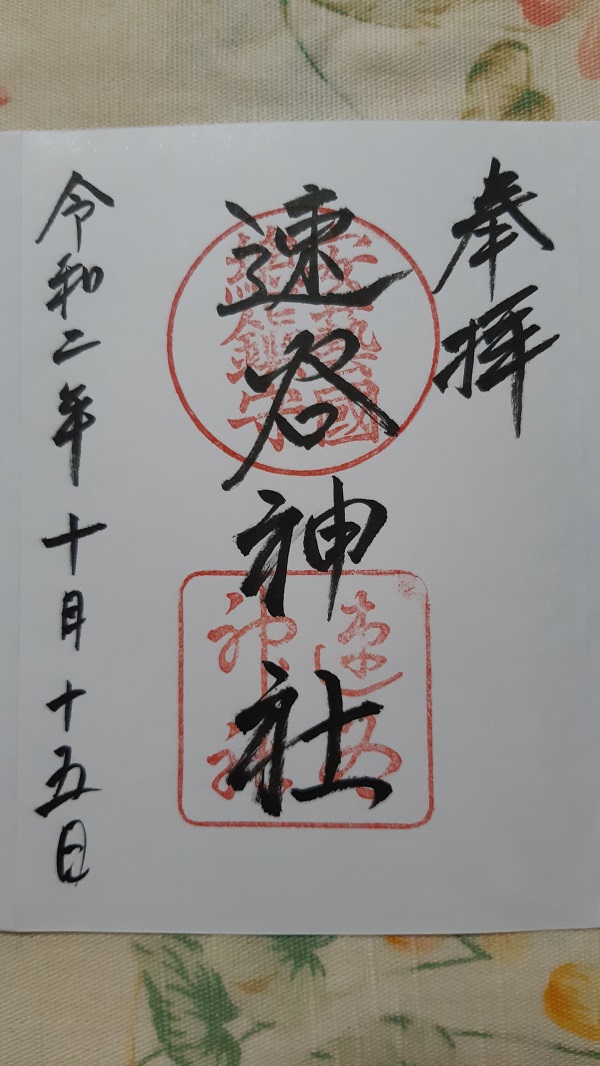 奉拝
速谷神社
安藝國
総鎮守
速谷
神社
令和二年十月十五日